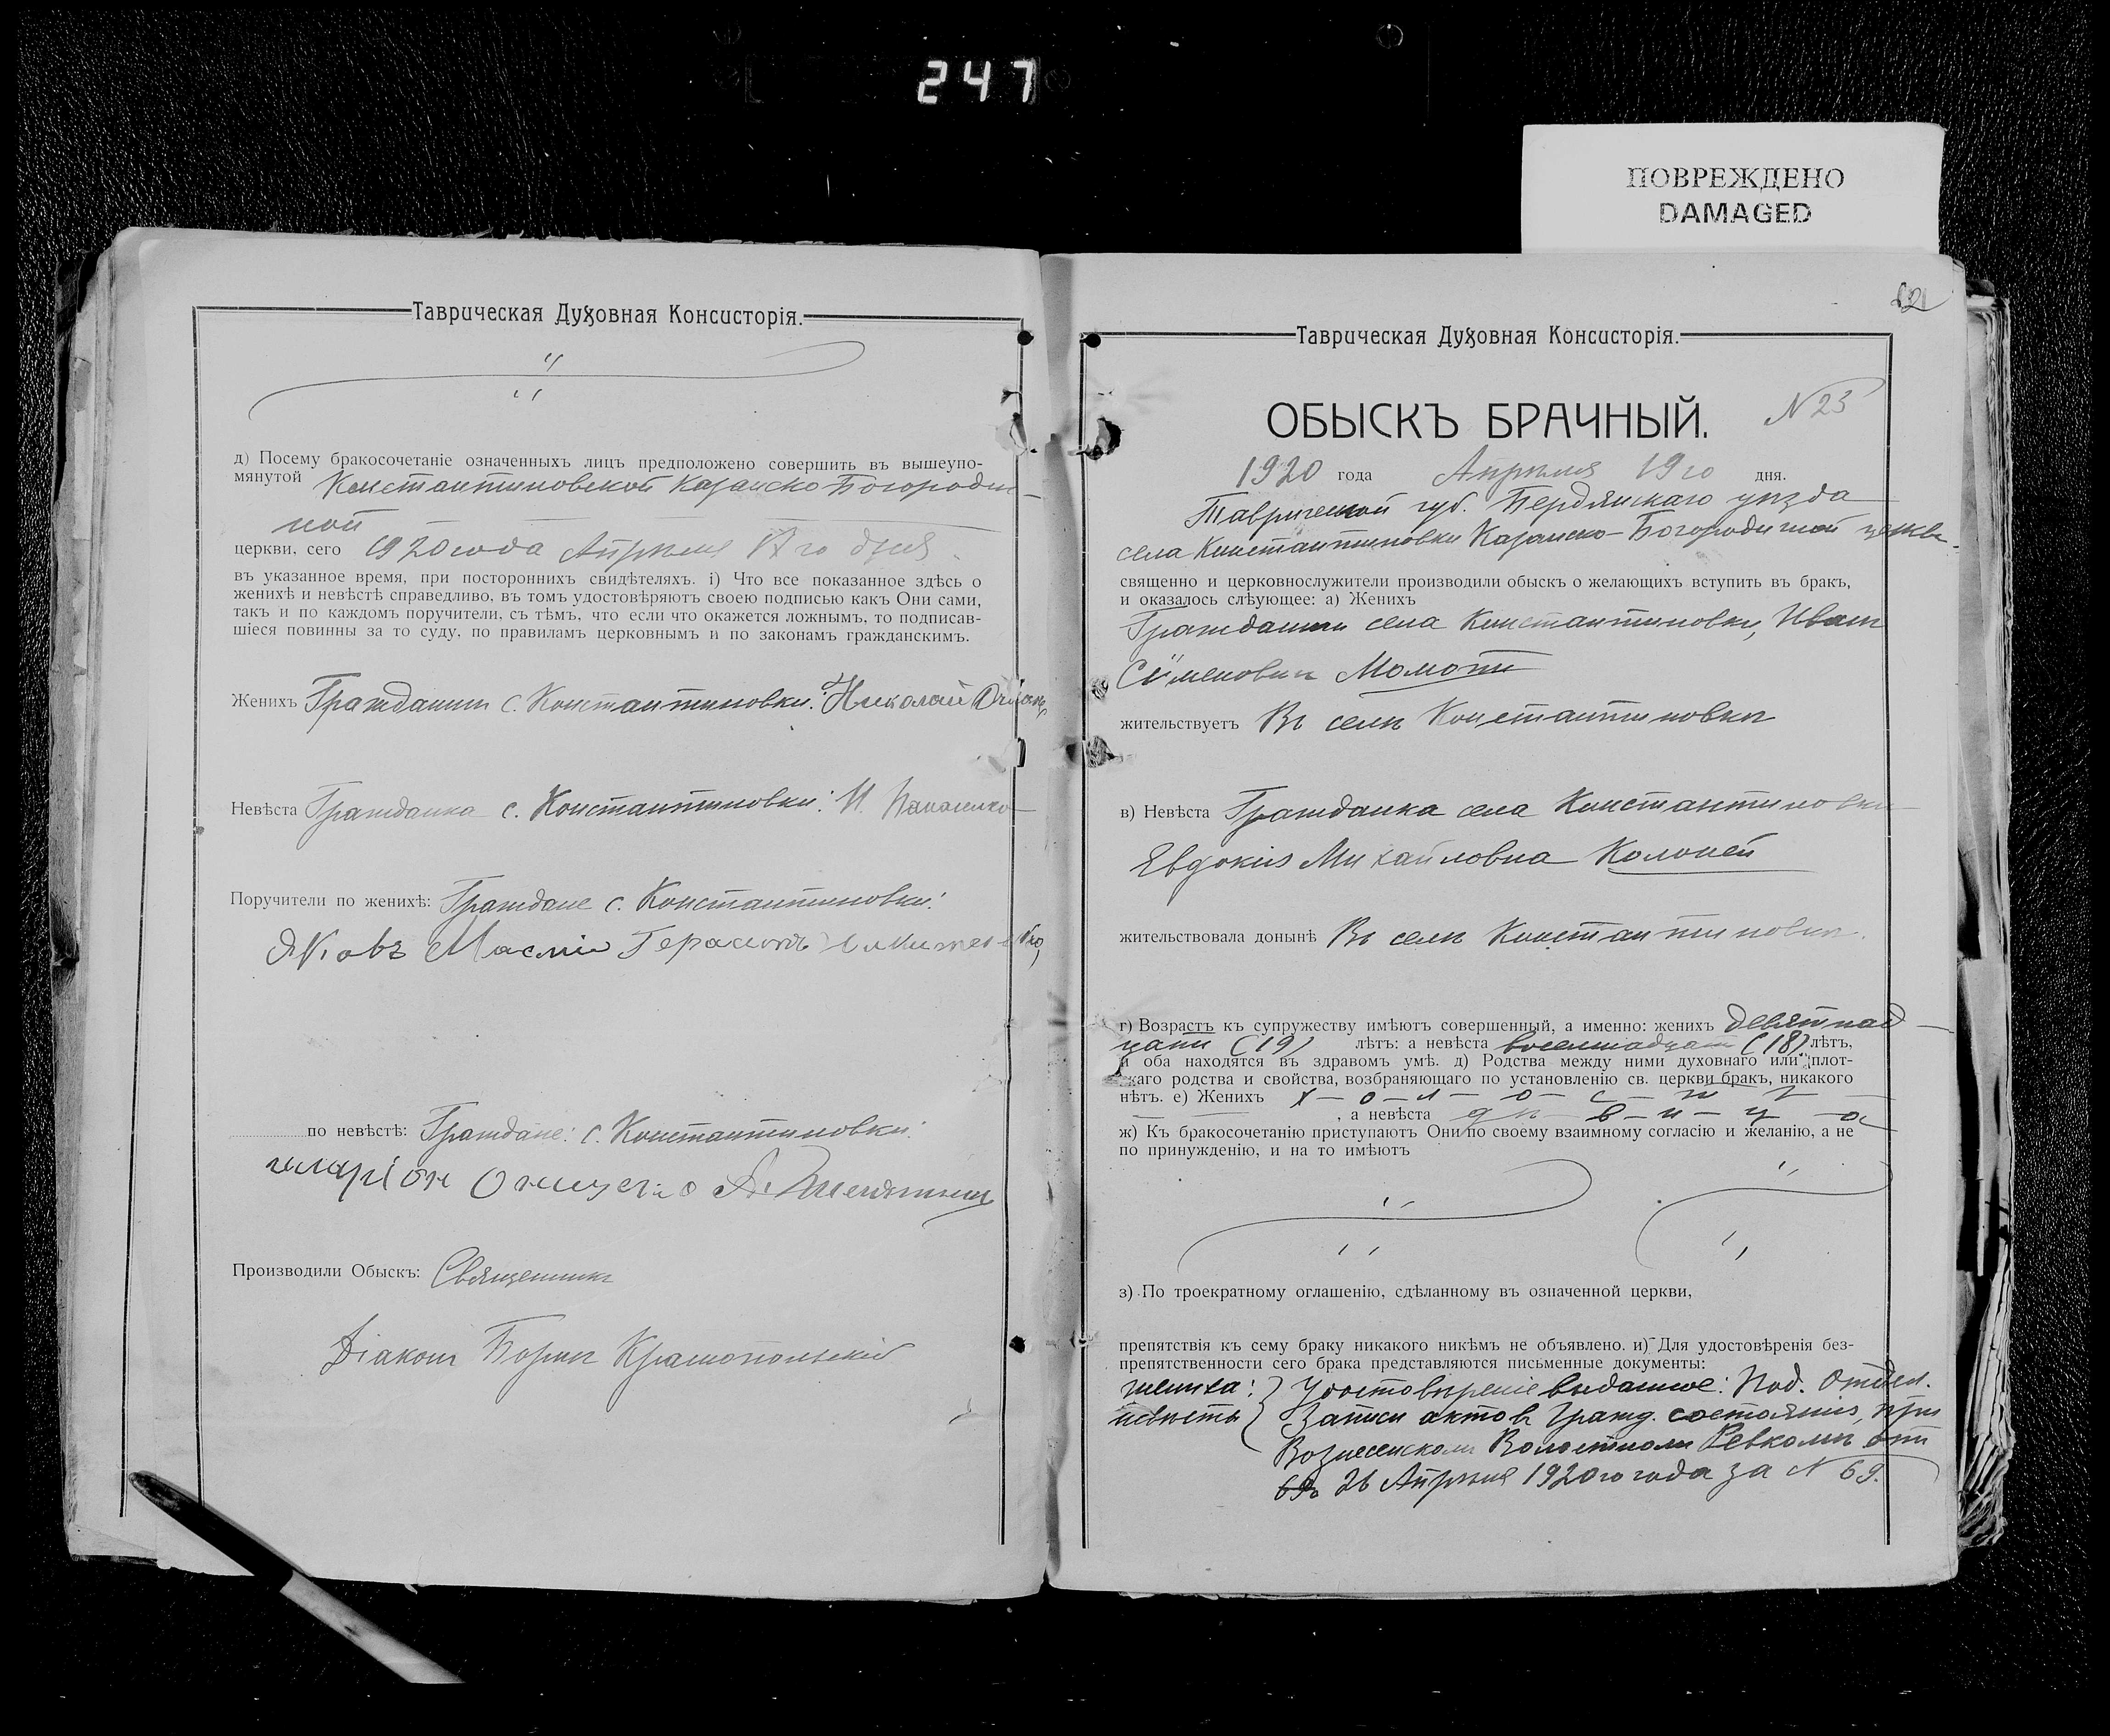 247
ПОВРЕЖДЕНО
DAMAGED
Таврическая Духовная Консисторія.
д) Посему бракосочетаніе означенныхъ лицъ предположено совершить въ вышеупо-
мянутой Константиновской Казанско Богородич-
ной
церкви, сего 1920 года Апрѣля го дня.
въ указанное время, при постороннихъ свидѣтеляхъ. і) Что все показанное здѣсь о
женихѣ и невѣстѣ справедливо, въ томъ удостовѣряютъ своею подписью какъ Они сами,
такъ и по каждомъ поручители, съ тѣмъ, что если что окажется ложнымъ, то подписав-
шіеся повинны за то суду, по правиламъ церковнымъ и по законамъ гражданскимъ.
Женихъ Гражданин с. Константиновки: Николай
Невѣста Гражданка с. Константиновки: И.
Поручители по женихѣ: Граждане с. Константиновки:
Яковъ Герасимъ
по невѣстѣ: Граждане: с. Константиновки:
иларіон А.
Производили Обыскъ: Священникъ
Діаконъ Борис Краснопольскій
121
Таврическая Духовная Консисторія.
ОБЫСКЪ БРАЧНЫЙ. N 23
1920 года Апрѣля 19го дня.
Таврической губ. Бердянскаго уѣзда
села Константиновки Казанско-Богородичной церкви.
священно и церковнослужители производили обыскъ о желающихъ вступить въ бракъ,
и оказалось слѣующее: а) Женихъ
Гражданин села Константиновки, Иван
Сименович Момот
жительствуетъ Въ селѣ Константиновкѣ
в) Невѣста Гражданка села Константиновки
Евдокія Михайловна Коломей
жительствовала донынѣ Въ селѣ Константиновкѣ.
г) Возрастъ къ супружеству имѣютъ совершенный, а именно: женихъ девятнад-
цати (19) лѣтъ: а невѣста восемнадцати (18) лѣтъ,
и оба находятся въ здравомъ умѣ. д) Родства между ними духовнаго или плот-
скаго родства и свойства, возбраняющаго по установленію св. церкви бракъ, никакого
нѣтъ. е) Женихъ х-о-л-о-с-т
, а невѣста дѣ-в-и-ц-а
ж) Къ бракосочетанію приступаютъ Они по своему взаимному согласію и желанію, а не
по принужденію, и на то имѣютъ
з) По троекратному оглашенію, сдѣланному въ означенной церкви,
препятствія къ сему браку никакого никѣмъ не объявлено. и) Для удостовѣренія без-
препятственности сего брака представляются письменные документы:
жениха: } Удостовѣреніе выданное: Под. Отдѣл.
невѣсты } Записи актов Гражд. состоянія, при
Вознесенском Волостном Ревкомѣ от
26 Апрѣля 1920 го года за N 69.